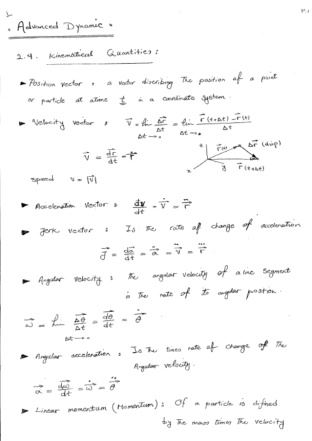 Advanced Dynamic
2.4. Kinematical Quantities :
► Position vector : a vector discribing The position of a point
or particle at atime t in a coordinate System.
► Velocity vector : V⃗ = lim Δr⃗/Δt = lim r⃗(t+Δt) - r⃗(t)/Δt
Δt→0 Δt→0
V⃗ = dr⃗/dt = r⃗˙
z r⃗(t) Δr⃗ (disp)
x y r⃗(t+Δt)
speed v = |V⃗|
► Acceleration Vector : dv/dt = V⃗˙ = r⃗¨
► Jerk vector : Is The rate of change of acceleration
J⃗ = da⃗/dt = a⃗˙ = V⃗¨ = r⃗⃛
► Angular Velocity : The angular velocity of a line Segment
is The rate of its angular position.
ω⃗ = Δθ⃗/Δt = dθ⃗/dt = θ⃗˙
Δt→0
► Angular acceleration : Is The times rate of change of The
Angular velocity.
α⃗ = dω⃗/dt = ω⃗˙ = θ⃗¨
► Linear momentum (Momentum) : Of a particle is difined
by The mass times The velocity